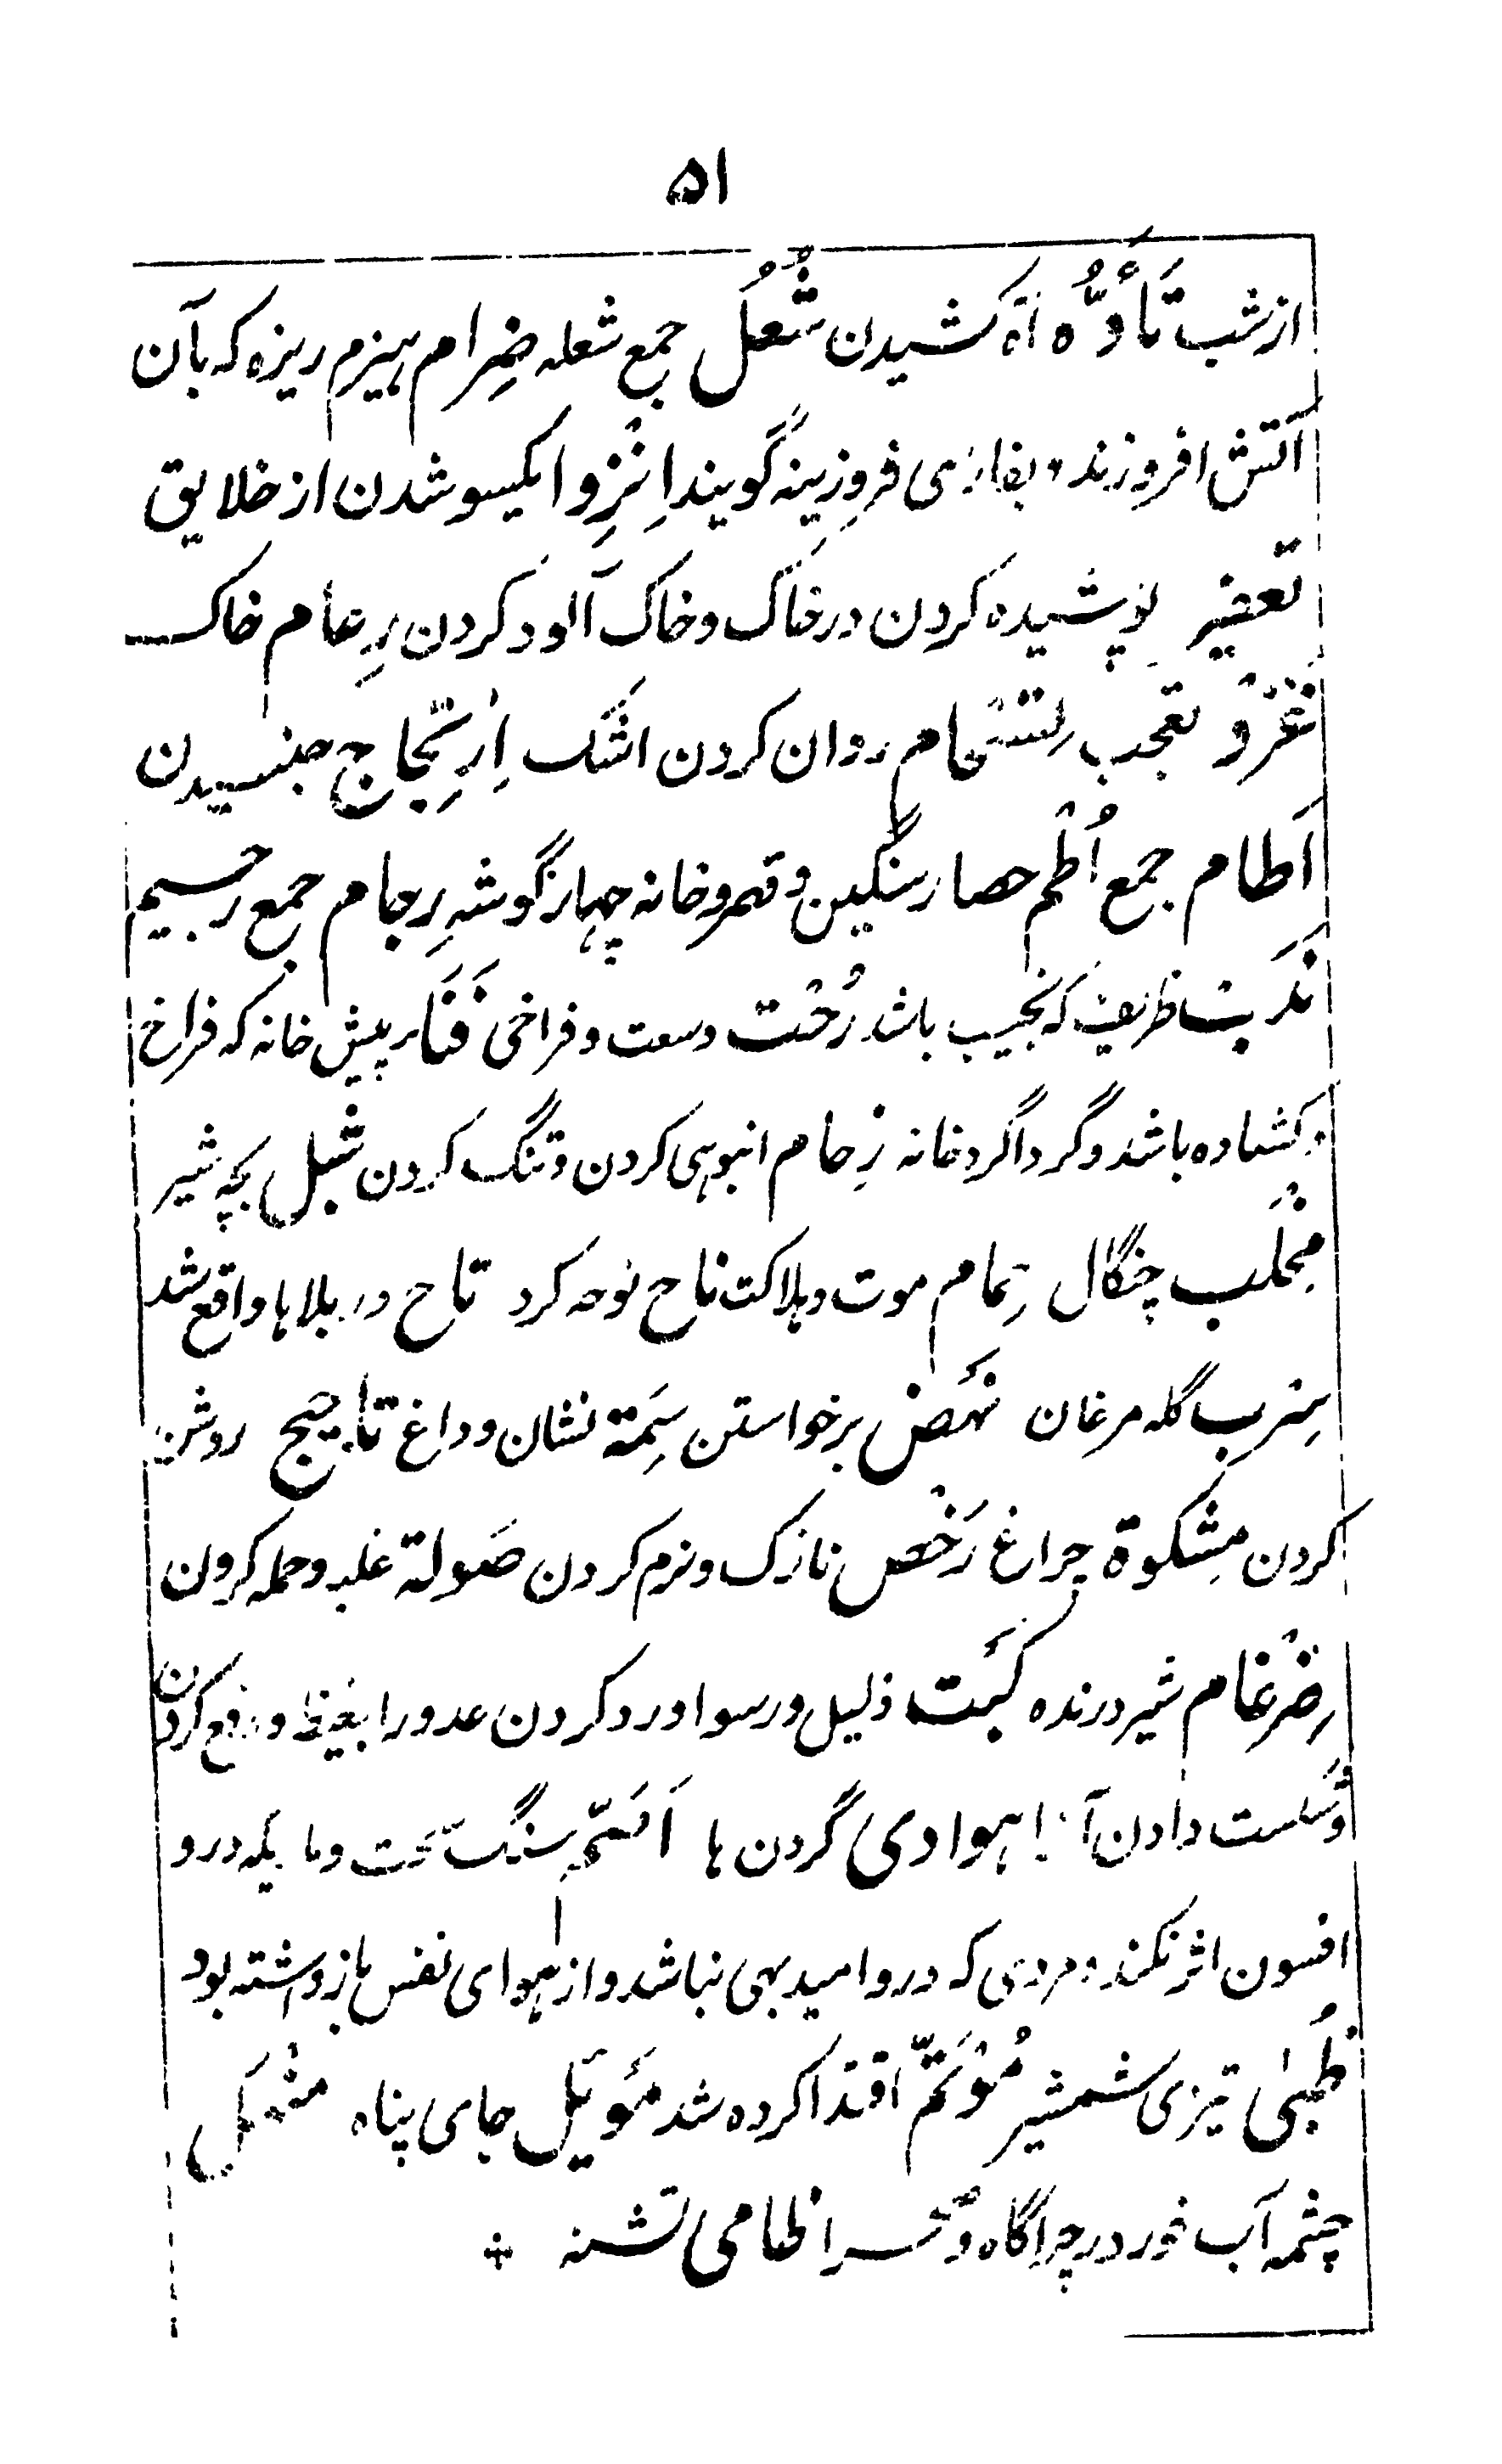 ۵۱
از شب تَأَوُّه آه کشیدن شُعُل جمع شعله ضِرام هیزم ریزه که بآن
آتش افروزند و بفارسی فروزینه گویند اِنْزِوا یکسو شدن از خلایق
تعفیر پوشیده کردن در خاک و خاک آلود کردن رِغام خاک
تعجب روان کردن اشک اِرْتِجاج جنبیدن
اَطام جمع اُطُم حصار سنگین و قصر و خانه چهار گوشه رِجام جمع رجیم
ظریف که نجیب باشد رُحْبت وسعت و فراخی فَنَاء پیش خانه که فراخ
و کشاده باشد و گرداگرد خانه زِحام انبوهی کردن و تنگ کردن شبل بچه شیر
مِخْلَب چنگال حِمام موت و هلاکت ناح نوحه کرد تاح در بلاها واقع شد
سِرب گله مرغان نَهَض برخواستن سِمَة نشان و داغ تاجیج روشن
کردن مِشکوة چراغ رَخْص نازک و نرم کردن صَولة غلبه و حمله کردن
ضِرْغام شیر درنده کَبَت ذلیل و رسوا و رد کردن عدو را بغیظ و دفع کردن
و شکست دادن آنرا هوادی گردن ها اَصَمّ سنگ سخت و ماریکه درو
افسون اثر نکند و مردی که درو امید بهی نباشد و از هوای نفس بازداشته بود
ظُبیٰ تیزی شمشیر مُؤتَمّ اقتدا کرده شد مَؤئِل جای پناه منهل
چشمه آب خور در چراگاه و ظامی تشنه ٭